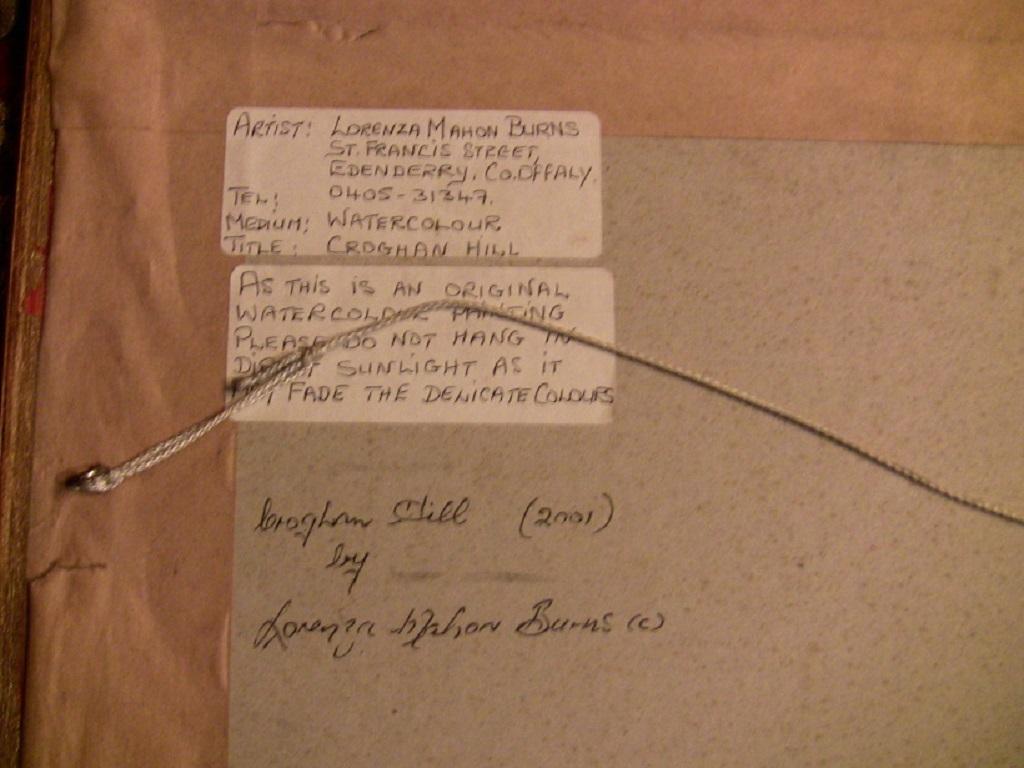 ARTIST: LORENZA MAHON BURNS
ST. FRANCIS STREET,
EDENDERRY, CO. OFFALY.
TEL: 0405-31347.
MEDIUM: WATERCOLOUR
TITLE: CROGHAN HILL
AS THIS IS AN ORIGINAL
WATERCOLOUR PAINTING
PLEASE DO NOT HANG IN
DIRECT SUNLIGHT AS IT
FADE THE DELICATE COLOURS
Croghan Hill (2001)
by
Lorenza Mahon Burns (c)